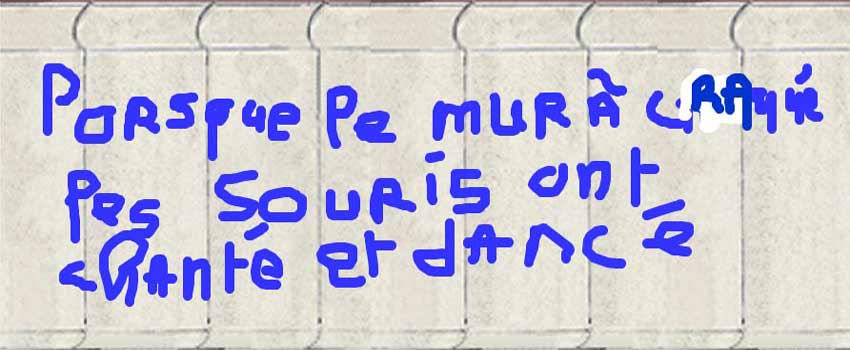 PORSque Pe MURÂ cRAqué
Pes SOURIS ont
chAnté et dAncé